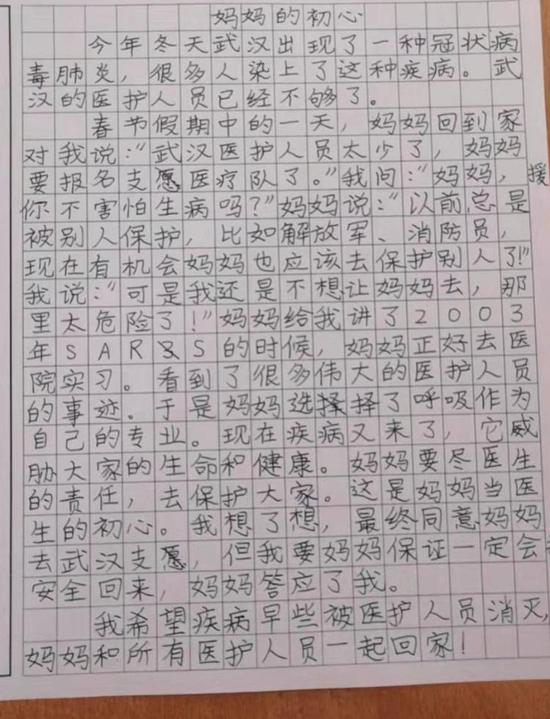 妈妈的初心
今年冬天武汉出现了一种冠状病
毒肺炎，很多人染上了这种疾病。武
汉的医护人员已经不够了。
春节假期中的一天，妈妈回到家
对我说：“武汉医护人员太少了，妈妈
要报名支愿医疗队了。”我问：“妈妈，援
你不害怕生病吗？”妈妈说：“以前总是
被别人保护，比如解放军、消防员，
现在有机会妈妈也应该去保护别人了！”
我说：“可是我还是不想让妈妈去，那
里太危险了！”妈妈给我讲了2003
年SARS的时候，妈妈正好去医
院实习。看到了很多伟大的医护人员
的事迹。于是妈妈选择择了呼吸作为
自己的专业。现在疾病又来了，它威
胁大家的生命和健康。妈妈要尽医生
的责任，去保护大家。这是妈妈当医
生的初心。我想了想，最终同意妈妈
去武汉支愿，但我要妈妈保证一定会
安全回来，妈妈答应了我。
我希望疾病早些被医护人员消灭，
妈妈和所有医护人员一起回家！